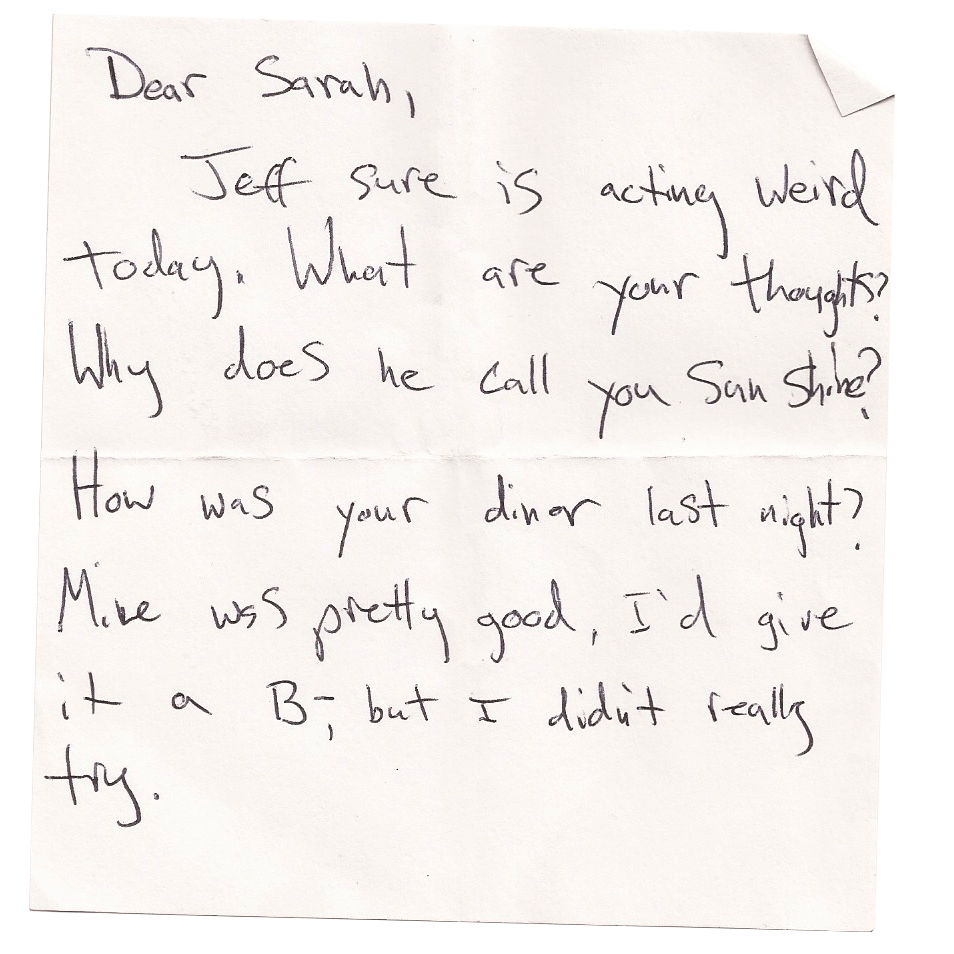 Dear Sarah,
Jeff sure is acting weird
today. What are your thoughts?
Why does he call you Sun Shine?
How was your diner last night?
Mine was pretty good, I'd give
it a B-, but I didn't really
try.